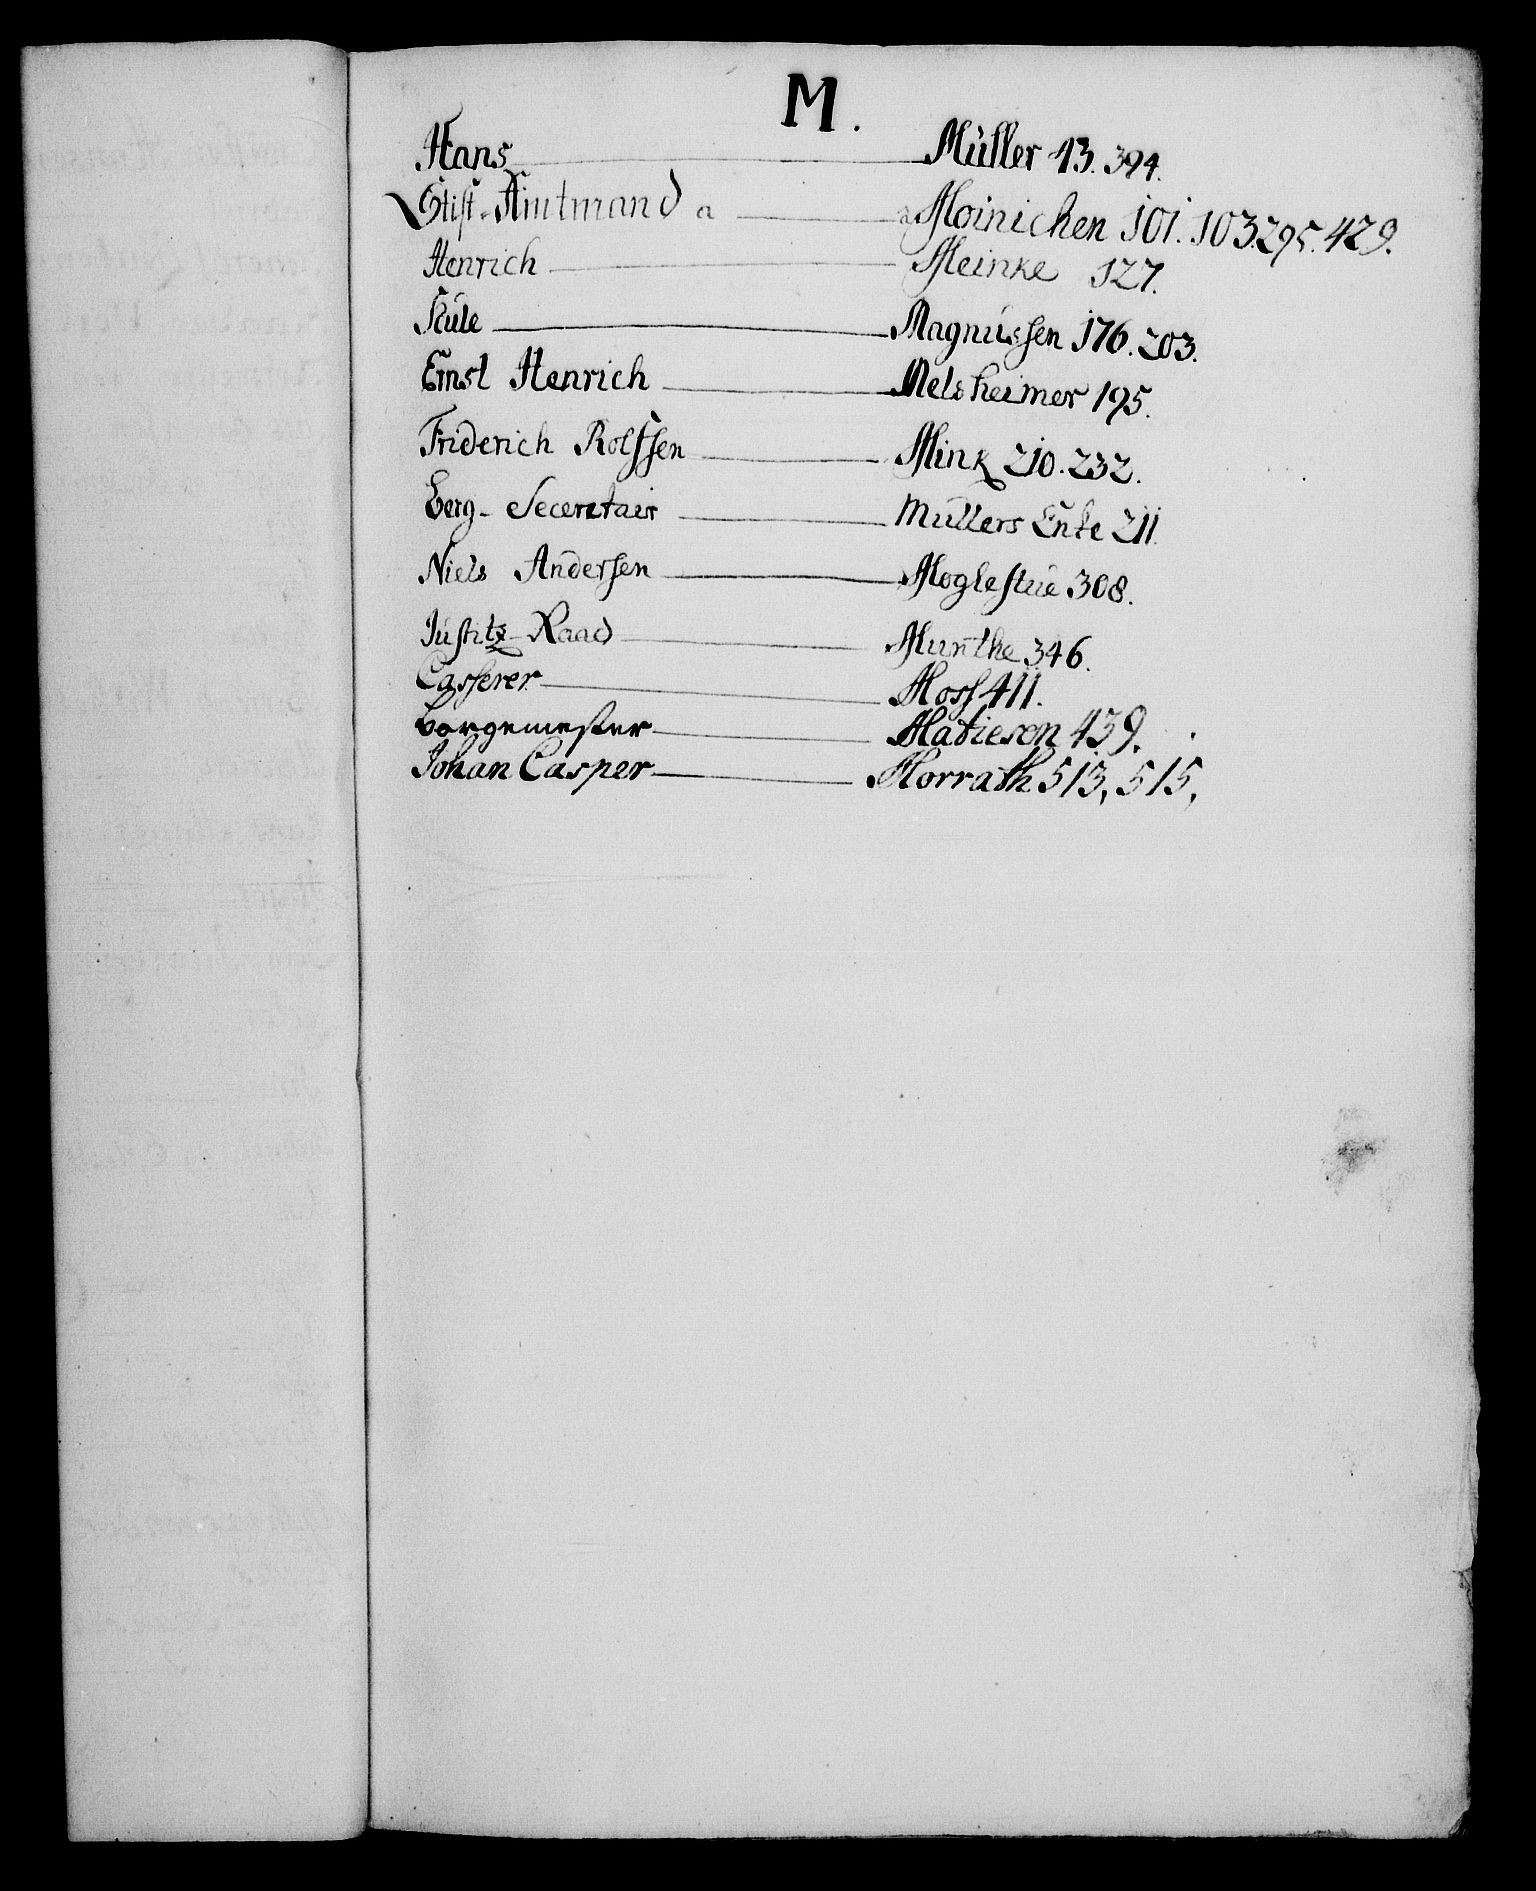 M.
Hans Müller 43. 394.
Stift-Amtmand a Moinichen 101. 103. 295. 429.
Henrich Meinke 127.
Skule Magnussen 176. 203.
Ernst Henrich Melsheimer 195.
Friderich Rolfssen Mink 210. 232.
Berg-Seceretair Mullers Enke 211.
Niels Andersen Moglestue 308.
Justitz-Raad Munthe 346.
Casserer Moss 411.
Borgemester Matiesen 439.
Johan Casper Morrath 513, 515,